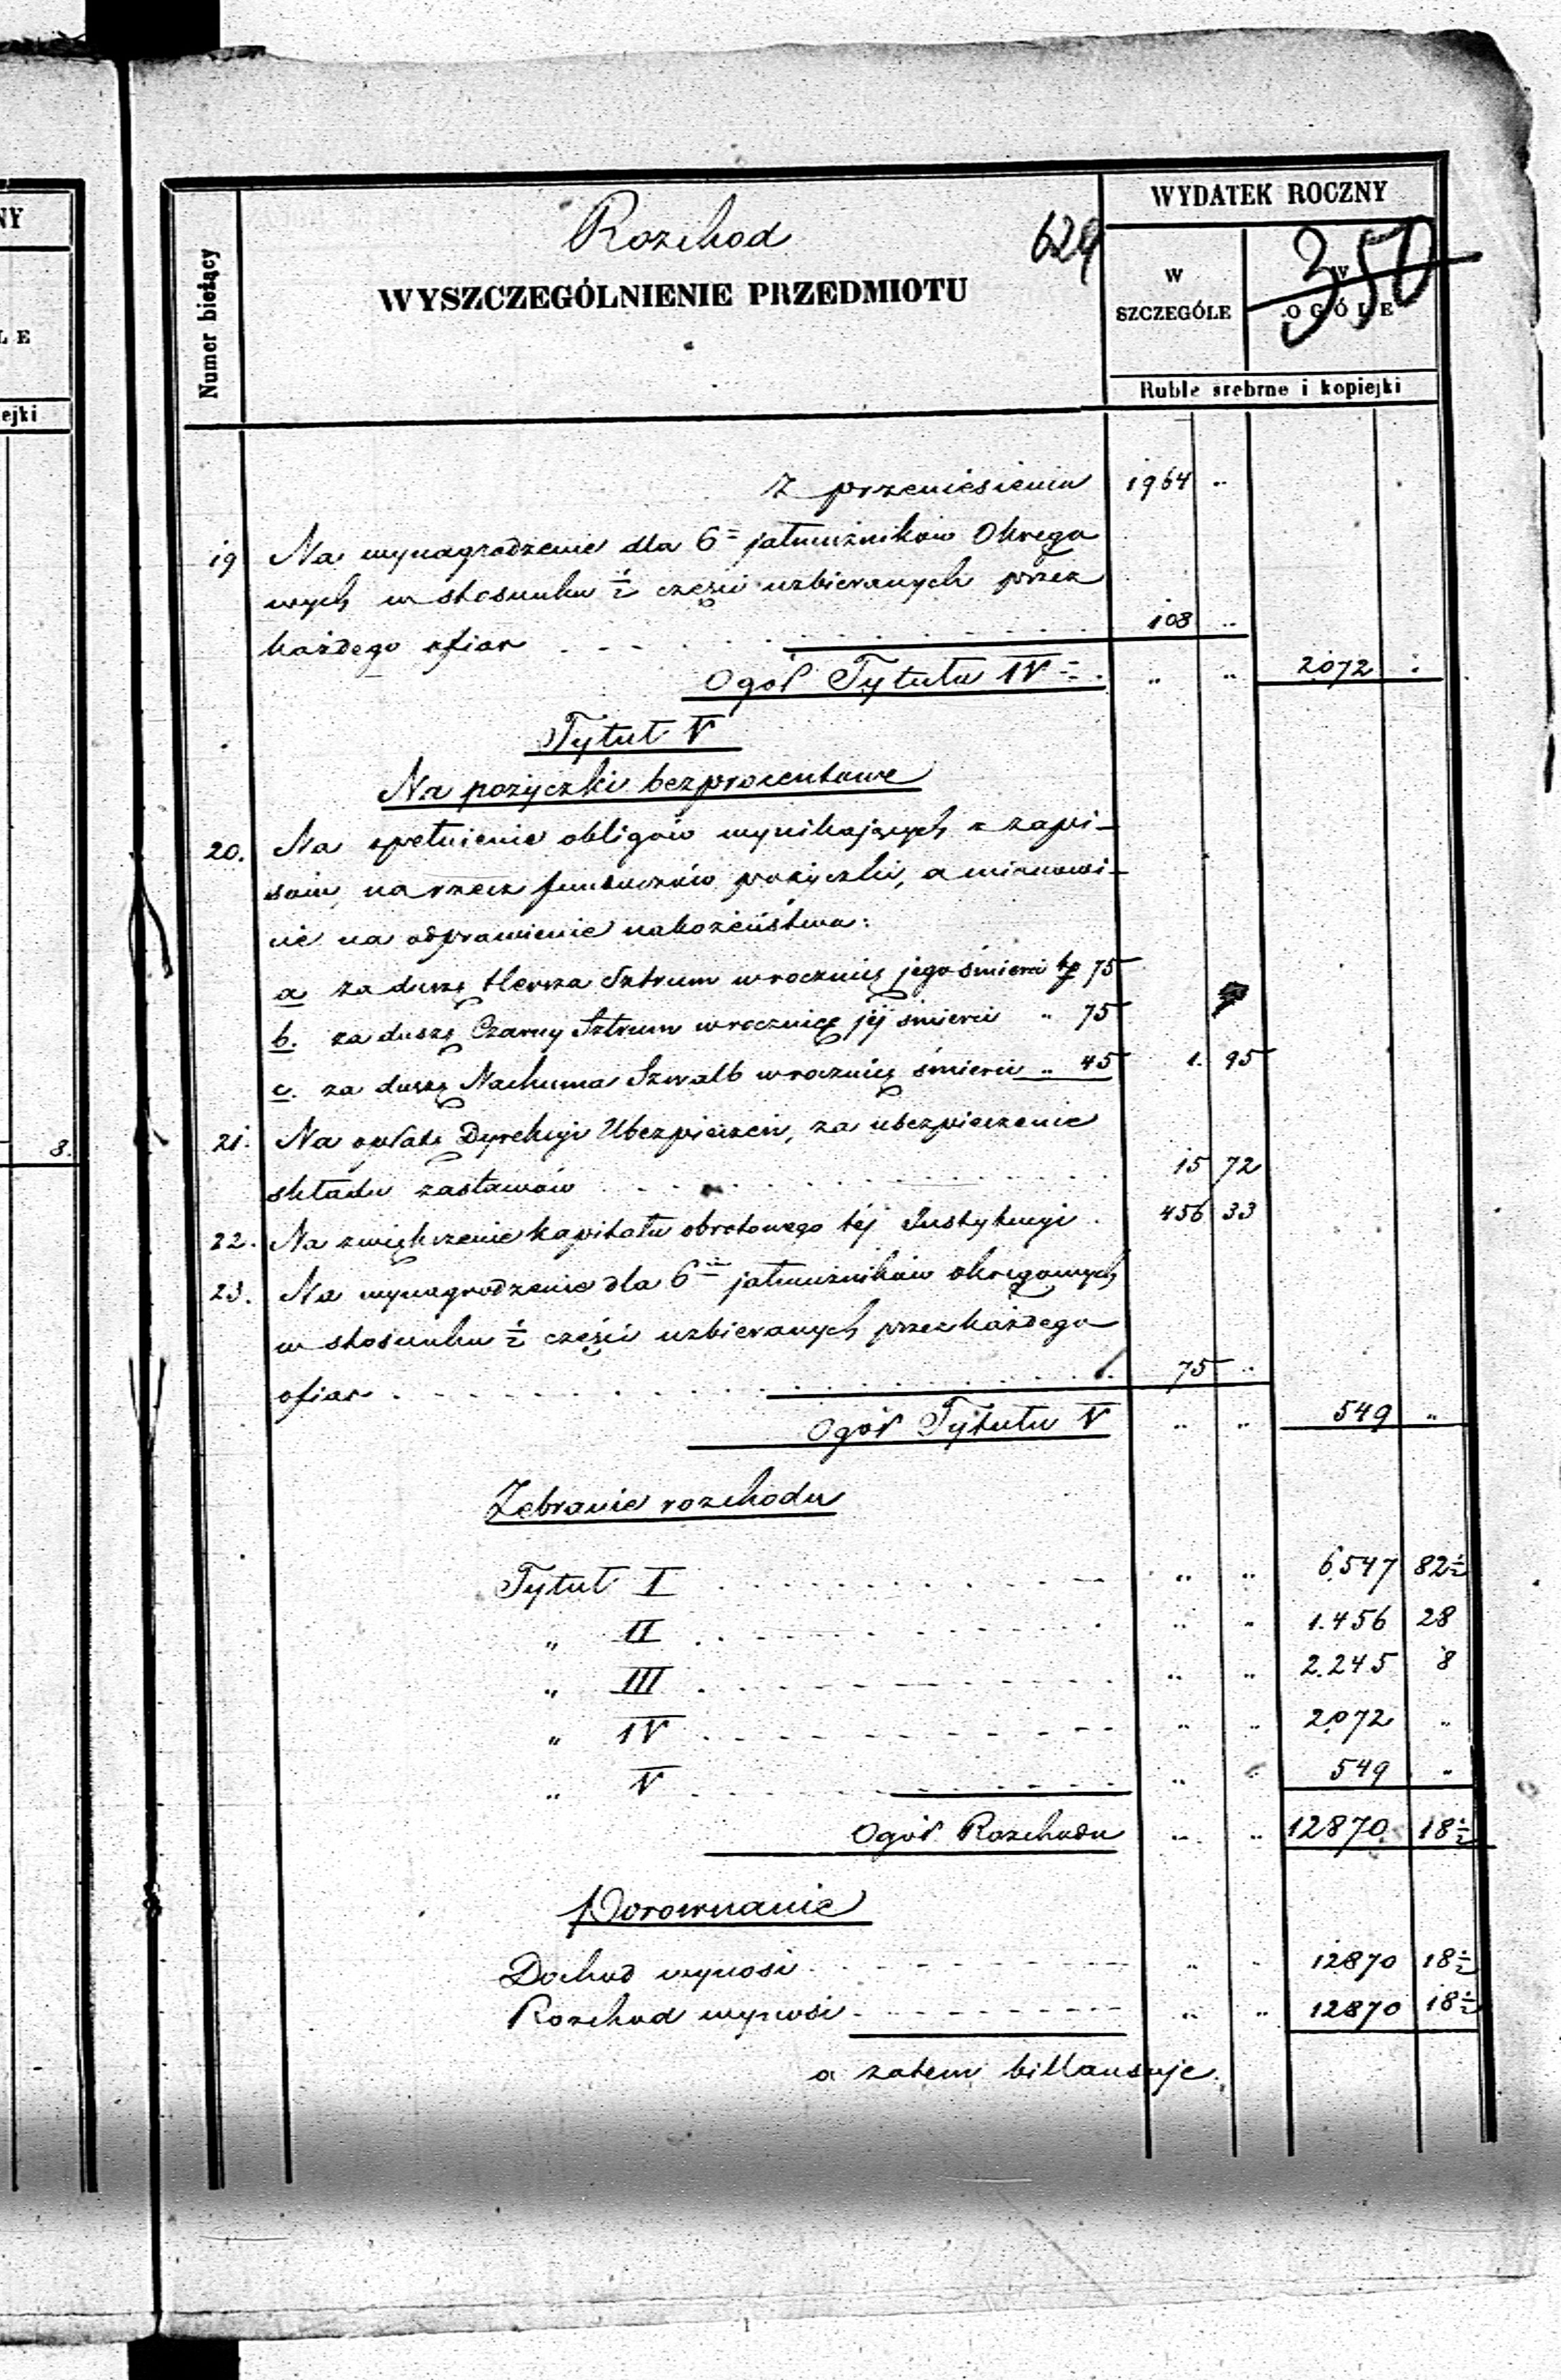 NY
LE
ejki
8.
Numer bieżący
Rozchod
WYSZCZEGÓLNIENIE PRZEDMIOTU
629
WYDATEK ROCZNY
W SZCZEGÓLE
W OGÓLE
350
Ruble srebrne i kopiejki
Z przeniesienia 1964 "
19 Na wynagrodzenie dla 6= jałmużników Okręgo
wych w stosunku ½ części uzbieranych przez
każdego ofiar . . . . 108 "
Ogół Tytułu IV = . " " 2072 "
Tytuł V
Na pożyczki bezprocentowe
20. Na spełnienie obligów wynikających z zapi-
sów, na rzecz funduszów pożyczki, a mianowi-
cie na odprawienie nabożeństwa:
a za duszę Hersza Sztrum w rocznicę jego śmierci kp 75
b. za duszę Czarny Sztrum w rocznicę jéj śmierci " 75
c. za duszę Nachuma Szwalb w rocznicę śmierci " 45 1. 95
21. Na opłatę Dyrekcyi Ubezpieczeń, za ubezpieczenie
składu zastawów . . . . 15 72
22. Na zwiększenie kapitału obrotowego téj Instytucyi . 456 33
23. Na wynagrodzenie dla 6= jałmużników okręgowych
w stosunku ½ części uzbieranych przez każdego
ofiar . . . . 75 "
Ogół Tytułu V " " 549 "
Zebranie rozchodu
Tytuł I . . . . " " 6.547 82½
" II . . . . " " 1.456 28
" III . . . . " " 2.245 8
" IV . . . . " " 2072 "
" V . . . . " " 549 "
Ogół Rozchodu " " 12870 18½
Porównanie
Dochod wynosi . . . . " " 12870 18½
Rozchod wynosi . . . . " " 12870 18½
a zatem billansuje.